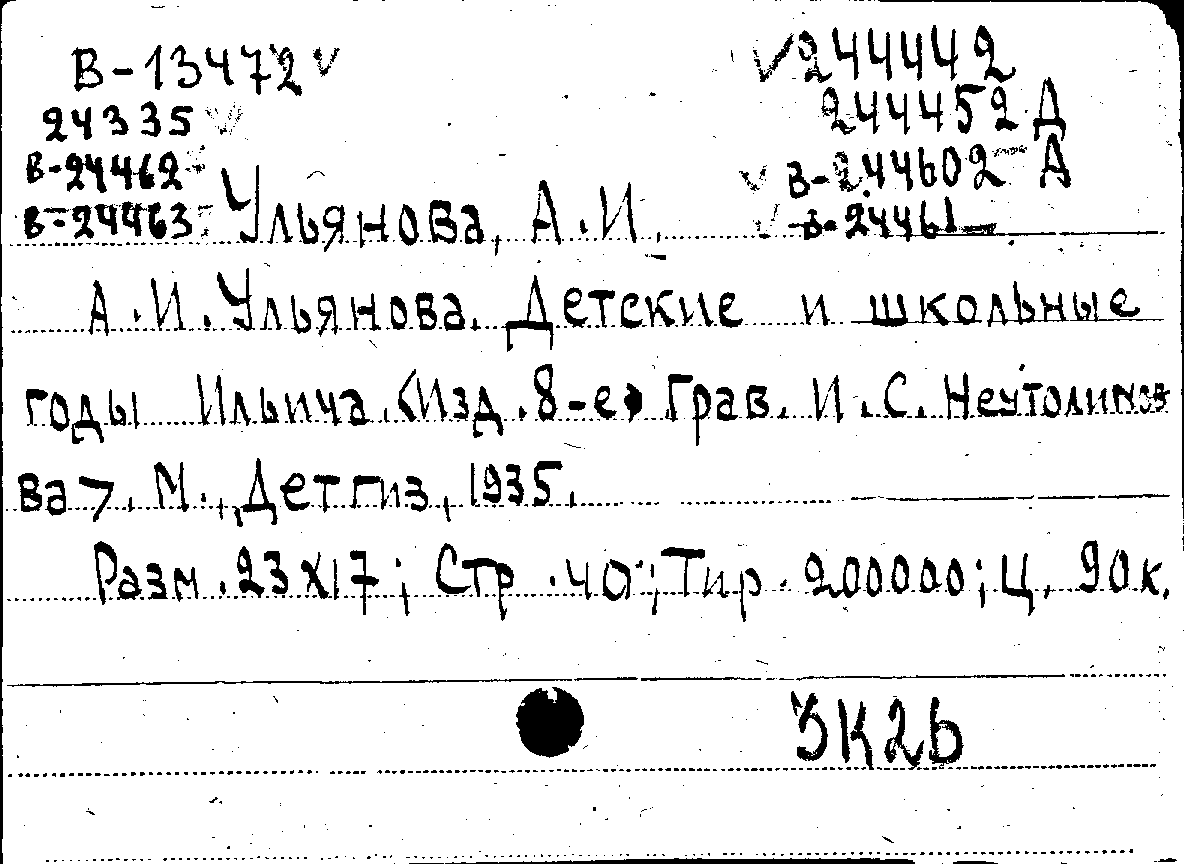 В-13472 244442
24335 244452 Д
В-24462 В-244602 А
В-24463 В-24461
Ульянова, А.И.
А.И.Ульянова. Детские и школьные
годы Ильича. <Изд. 8-е> Грав. И.С. Неутолимов
ва>. М., Детгиз, 1935.
Разм. 23х17; Стр. 40; Тир. 200000; Ц. 90к.
3К2Б